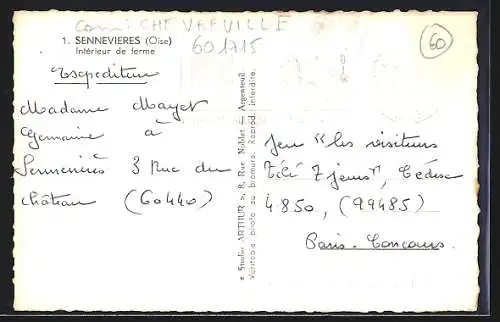 com: CHEVREVILLE
601715
60
1. SENNEVIERES (Oise)
Intérieur de ferme
Expediteur
Madame Mayet
Germaine à
Sennevières 3 Rue du
château (60440)
« Studio ARTHUR », 8, Rue Noblet - Argenteuil.
Véritable photo au bromure. Reprod. interdite.
Jeu "les visiteurs
Télé 7 jours", Cédex
4850, (99485)
Paris-Concours.